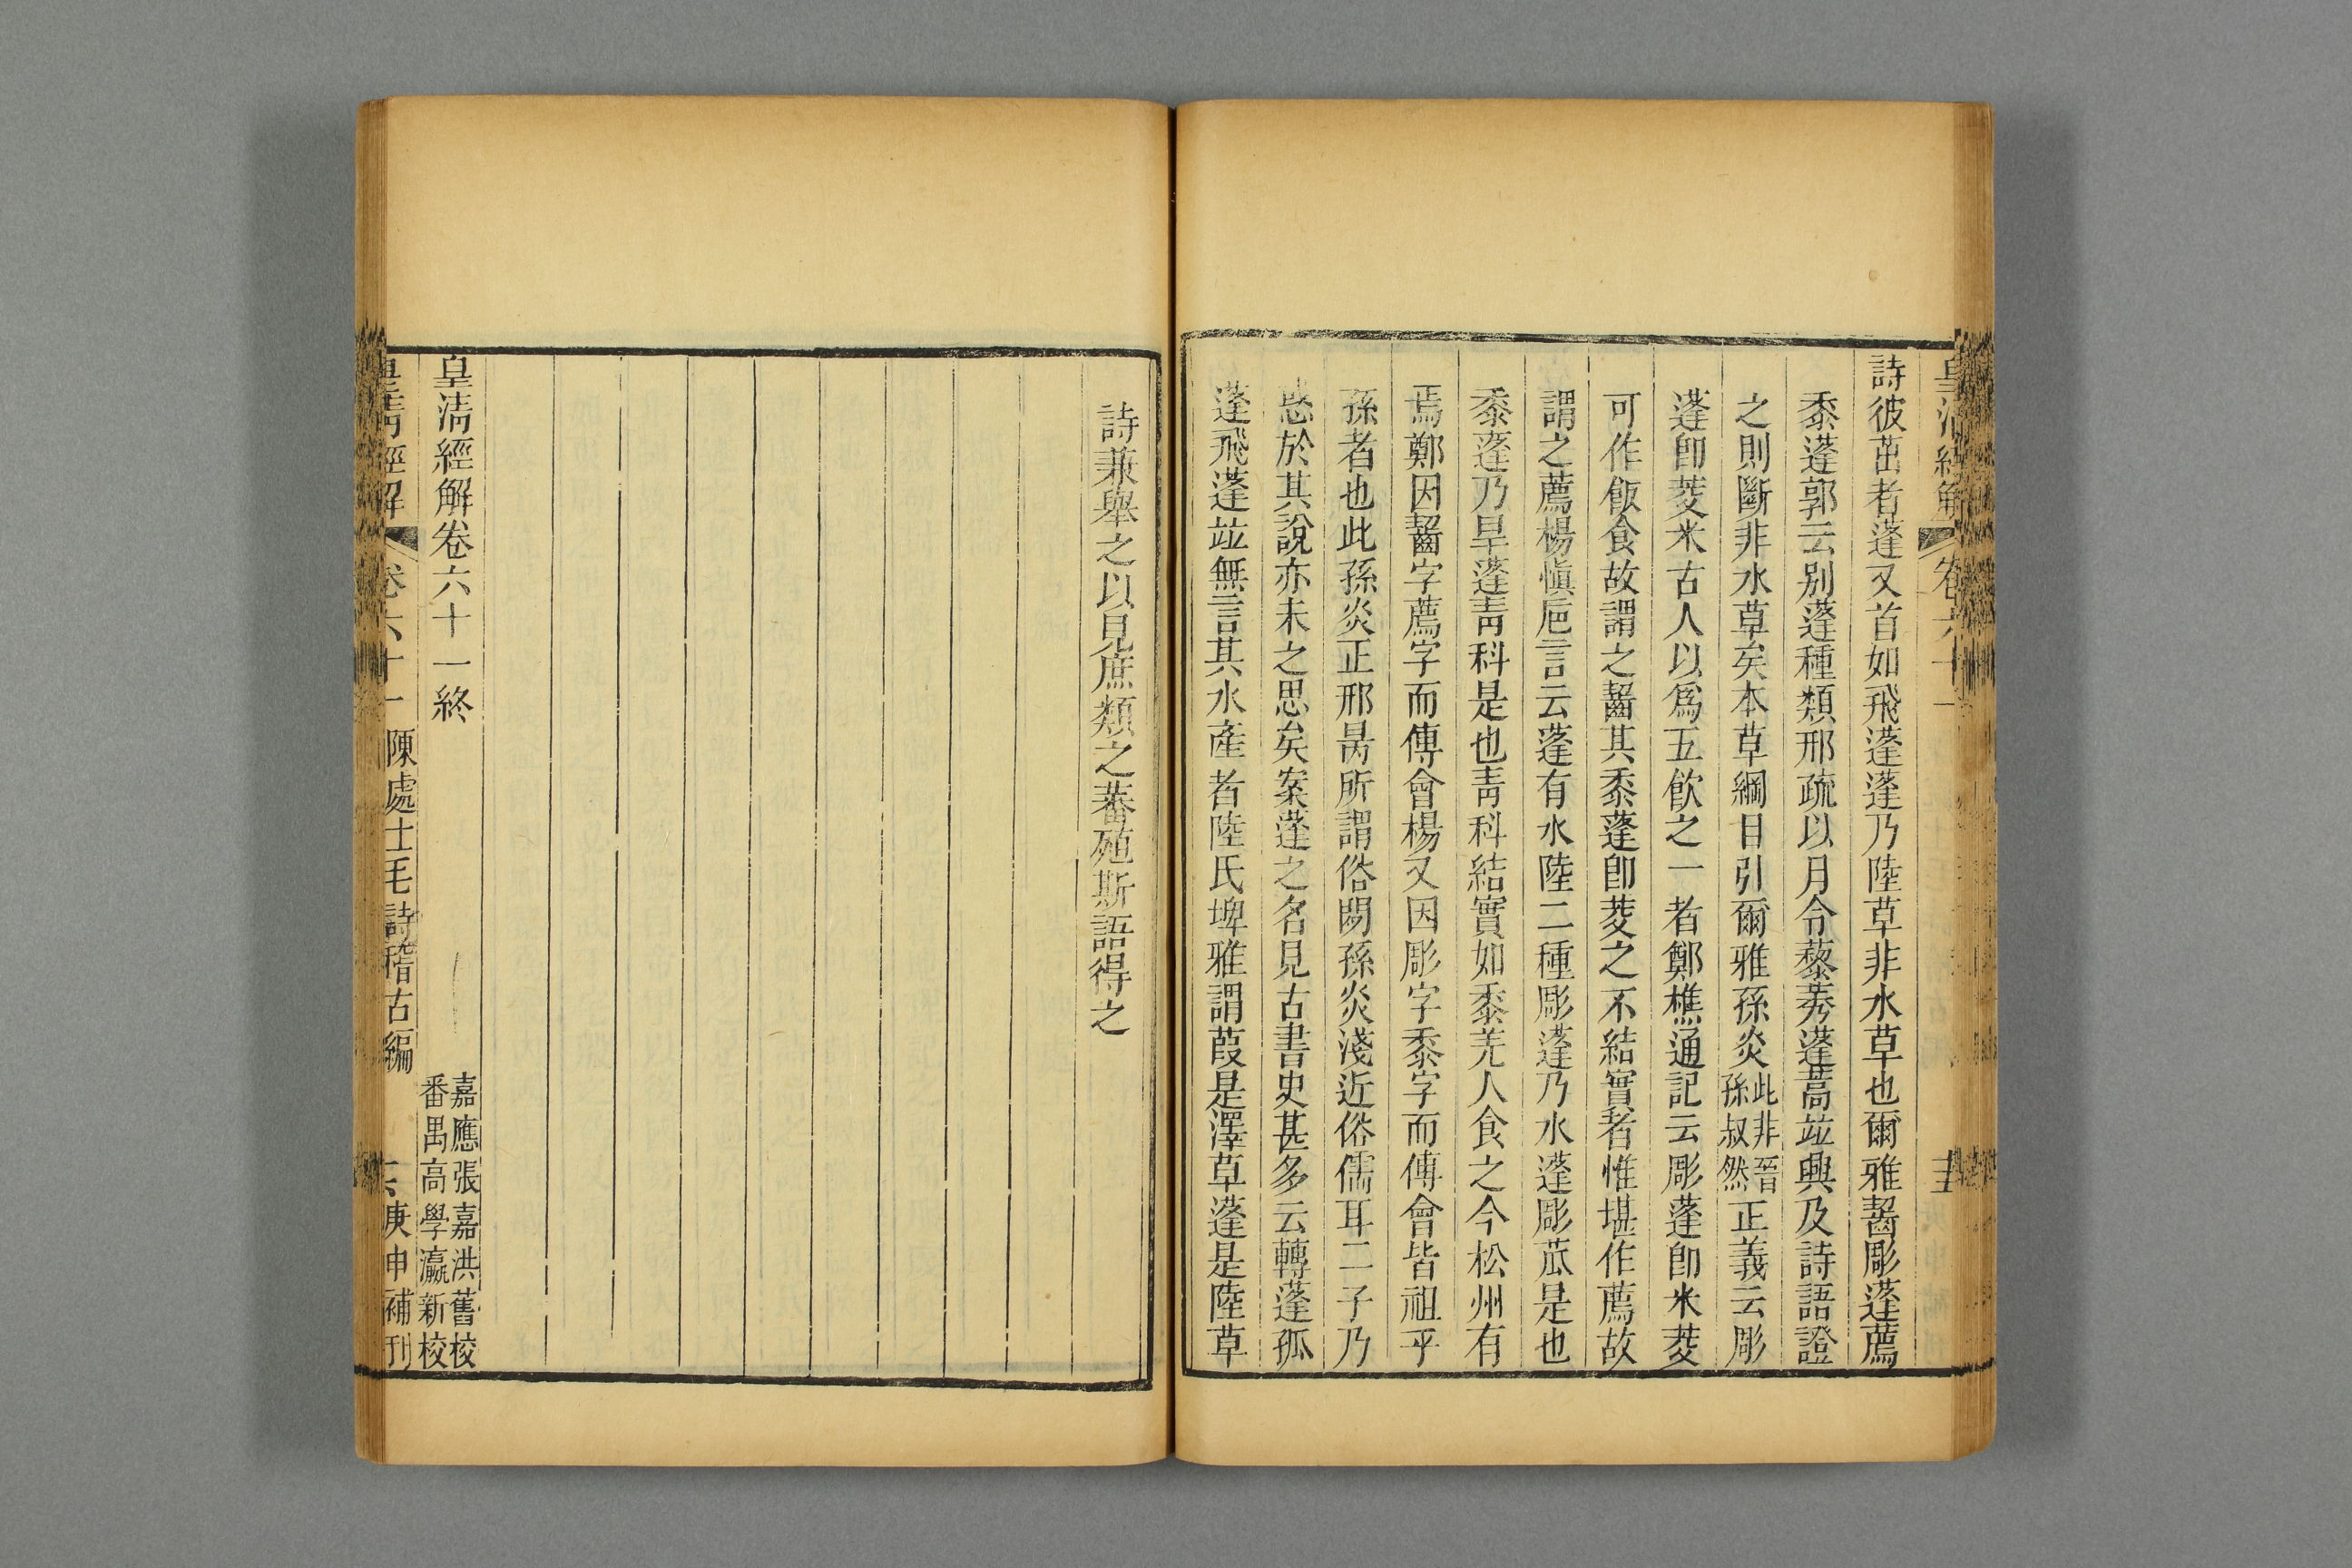 皇清經解 卷六十一
詩彼茁者蓬又首如飛蓬蓬乃陸草非水草也爾雅齧彫蓬薦
黍蓬郭云別蓬種類邢疏以月令藜莠蓬蒿竝興及詩語證
之則斷非水草矣本草綱目引爾雅孫炎此非晉孫叔然正義云彫
蓬卽茭米古人以爲五飮之一者鄭樵通記云彫蓬卽米茭
可作飯食故謂之齧其黍蓬卽茭之不結實者惟堪作薦故
謂之薦楊愼巵言云蓬有水陸二種彫蓬乃水蓬彫苽是也
黍蓬乃旱蓬靑科是也靑科結實如黍羌人食之今松州有
焉鄭因齧字薦字而傳會楊又因彫字黍字而傳會皆祖乎
孫者也此孫炎正邢昺所謂俗閒孫炎淺近俗儒耳二子乃
惑於其說亦未之思矣案蓬之名見古書史甚多云轉蓬孤
蓬飛蓬竝無言其水產者陸氏埤雅謂葭是澤草蓬是陸草
詩兼舉之以見庶類之蕃殖斯語得之
皇清經解卷六十一終
嘉應張嘉洪舊校
番禺高學瀛新校
皇清經解 卷六十一 陳處士毛詩稽古編 庚申補刊